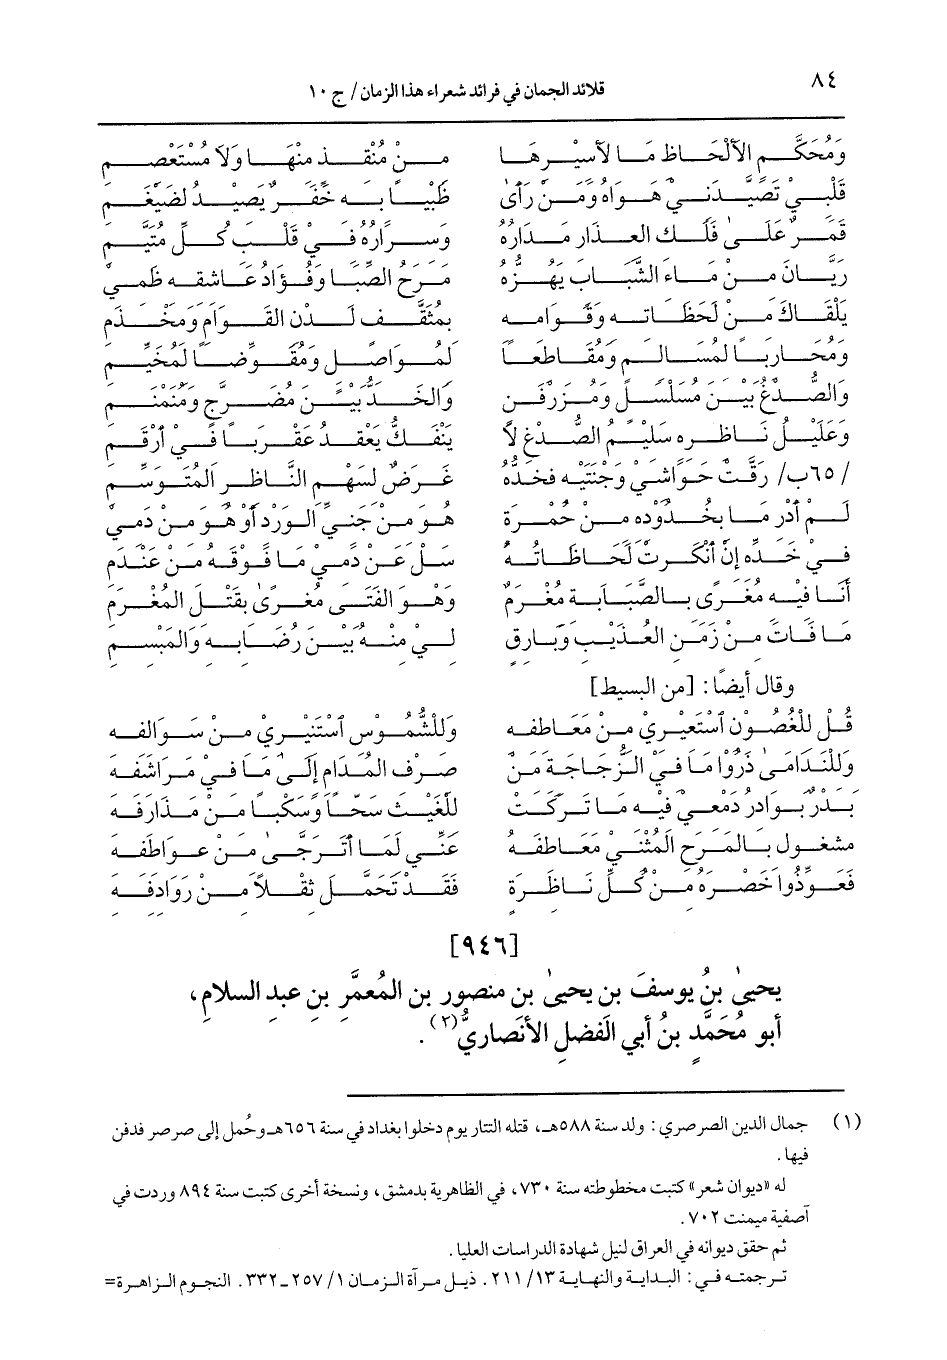 ٨٤
قلائد الجمان في فرائد شعراء هذا الزمان / ج ١٠
وَمُحَكَّم الأَلْحَاظ مَا لأَسيْرهَا مَنْ مُنْقذ منْهَا وَلَا مُسْتَعْصم
قَلْبي تَصَيَّدَني هَوَاهُ وَمَنْ رَأَىٰ ظَبْياً به خَفَرٌ يَصيْدُ لضَيْغَم
قَمَرٌ عَلَىٰ فَلَك العذَار مَدَارُهُ وَسرَارُهُ فيْ قَلْب كُلِّ مُتَيَّم
رَيَّانُ منْ مَاء الشَّبَاب يَهُزُّهُ مَرحُ الصِّبَا وَفُؤَادُ عَاشقه ظَمي
يَلْقَاكَ منْ لَحَظَاته وَقَوَامه بمُثَقَّف لَدْن القَوَام وَمخْذَم
وَمُحَارباً لمُسَالم وَمُقَاطعاً لمُوَاصل وَمُقَوّضاً لمُخَيّم
وَالصُّدْغُ بَيْنَ مُسَلْسَل وَمُزَرْفَن وَالخَدُّ بَيْنَ مُضَرَّج وَمُنَمْنَم
وَعَليْلُ نَاظره سَليْمُ الصُّدْغ لَا يَنْفَكُّ يَعْقدُ عَقْرَباً فيْ أَرْقَم
/٦٥ب/ رَقَّتْ حَوَاشيْ وَجْنَتَيْه فَخَدُّهُ غَرَضٌ لسَهْم النَّاظر المُتَوَسّم
لَمْ أَدْر مَا بخُدُوده منْ حُمْرَة هُوَ منْ جَنيِّ الوَرْد أَوْ هُوَ منْ دَميْ
فيْ خَدّه إنْ أَنْكَرَتْ لَحَاظَاتُهُ سَلْ عَنْ دَميْ مَا فَوْقَهُ منْ عَنْدَم
أَنَا فيْه مُغْرًى بالصَّبَابَة مُغْرَمٌ وَهُوَ الفَتَىٰ مُغْرًى بقَتْل المُغْرَم
مَا فَاتَ منْ زَمَن العُذَيْب وَبَارق ليْ منْهُ بَيْنَ رُضَابه وَالمَبْسم
وقال أيضاً: [من البسيط]
قُلْ للْغُصُوْن ٱسْتَعيْريْ منْ مَعَاطفه وَللشُّمُوْس ٱسْتَنيْريْ منْ سَوَالفه
وَللنَّدَامَىٰ ذَرُوْا مَا في الزُّجَاجَة منْ صرْف المُدَام إلَىٰ مَا في مَرَاشفه
بَدْرٌ بَوَادرُ دَمْعيْ فيْه مَا تَرَكَتْ للْغَيْث سَحّاً وَسَكْباً منْ مَذَارفه
مشغول بالمَرَح المُثْنيْ مَعَاطفَهُ عَنّيْ لَمَا أَتَرَجَّىٰ منْ عَوَاطفه
فَعَوّذُوا خَصْرَهُ منْ كُلِّ نَاظرَة فَقَدْ تَحَمَّلَ ثقْلاً منْ رَوَادفه
[٩٤٦]
يحيىٰ بنُ يوسفَ بن يحيىٰ بن منصور بن المُعمَّرِ بنِ عبدِ السلامِ،
أبو مُحمَّدٍ بنُ أبي الفَضلِ الأنَصاريُّ(٢).
(١) جمال الدين الصرصري: ولد سنة ٥٨٨هـ، قتله التتار يوم دخلوا بغداد في سنة ٦٥٦هـ وحُمل إلى صرصر فدفن
فيها.
له «ديوان شعر» كتبت مخطوطته سنة ٧٣٠، في الظاهرية بدمشق، ونسخة أخرى كتبت سنة ٨٩٤ وردت في
آصفية ميمنت ٧٠٢.
ثم حقق ديوانه في العراق لنيل شهادة الدراسات العليا.
ترجمته في: البداية والنهاية ١٣/ ٢١١. ذيل مرآة الزمان ١/ ٢٥٧ـ٣٣٢. النجوم الزاهرة=